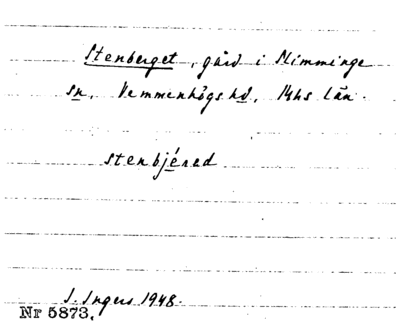 Stenberget, gård i Slimminge
sn, Vemmenhögs hd, Mhs län.
stenbjérəd
I. Ingers 1948.
Nr 5873.